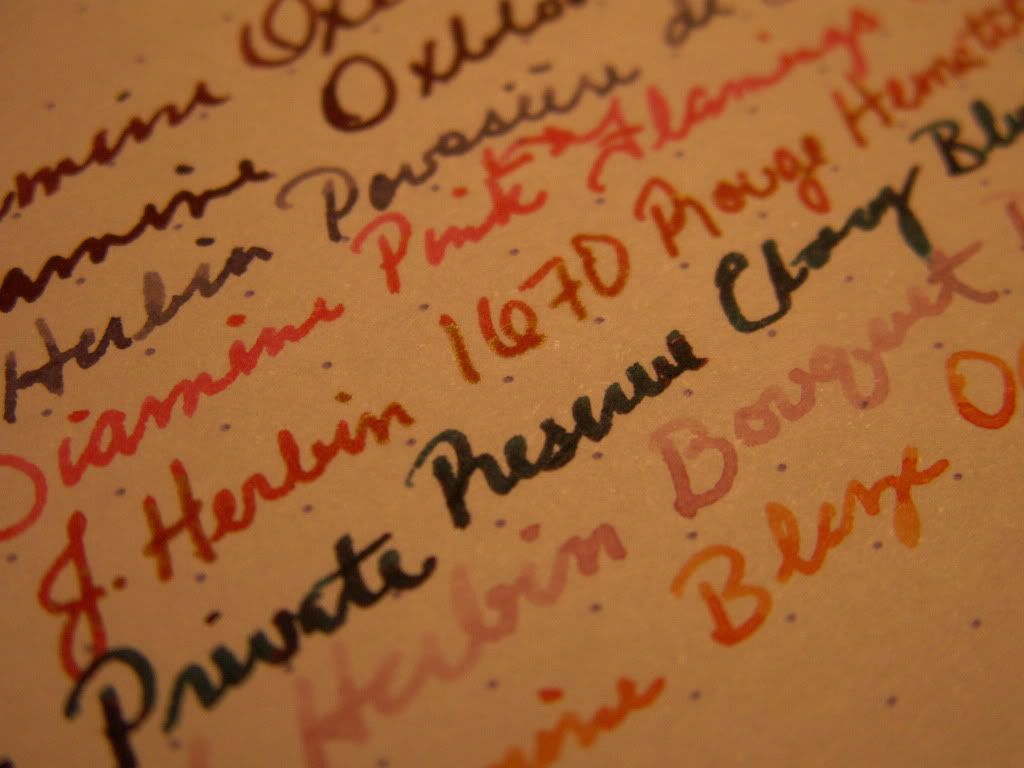 Oxblo
Herbin Poussière de
Diamine Pink Flamingo
J. Herbin 1670 Rouge Hematit
Private Reserve Ebony Blu
Herbin Bouquet
Blaze O